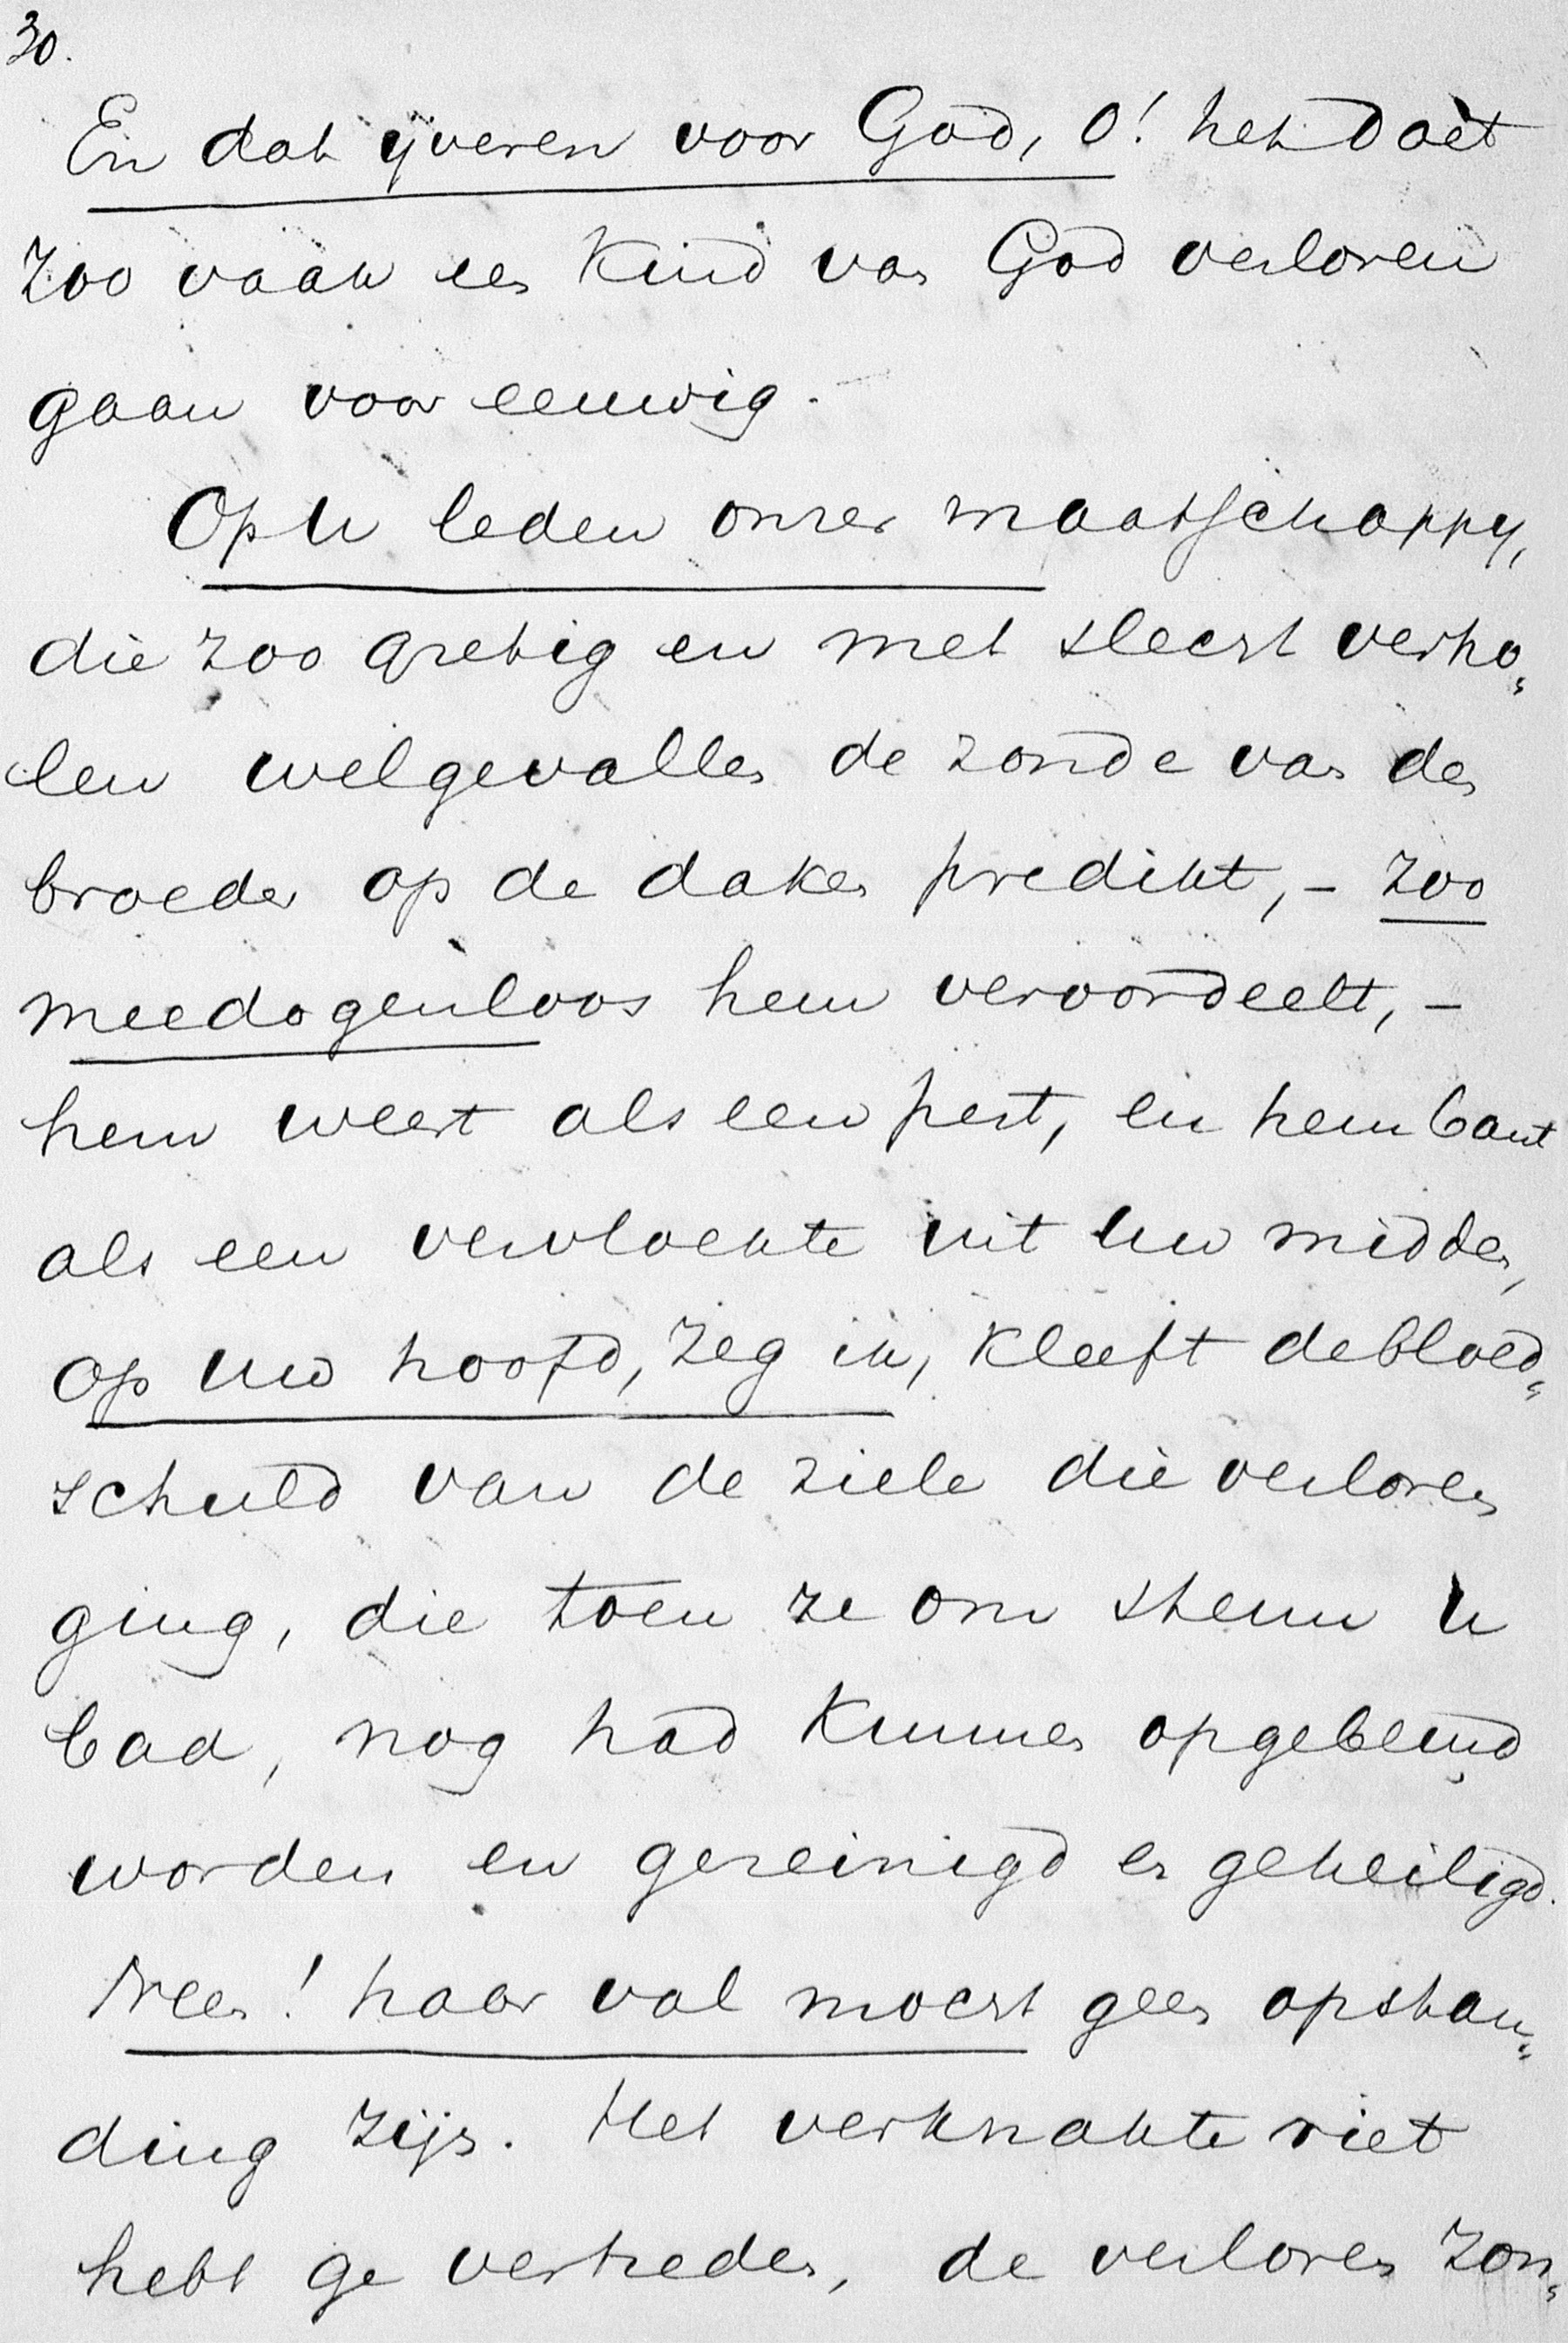 30.
En dat ijveren voor God, O! het doet
zoo vaak een kind van God verloren
gaan voor eeuwig.
Op U leden onzer maatschappy,
die zoo gretig en met slecht verho„
len welgevallen de zonde van den
broeder op de daken predikt, – zoo
meedogenloos hem veroordeelt, –
hem weert als een pest, en hem bant
als een vervloekte uit uw midden,
op uw hoofd, zeg ik, kleeft de bloed„
schuld van de ziele die verloren
ging, die toen ze om steun U
bad, nog had kunnen opgebeurd
worden en gereinigd en geheiligd.
Neen! haar val moest geen opstan„
ding zijn. Het verknakte riet
hebt ge vertreden, de verloren zon„